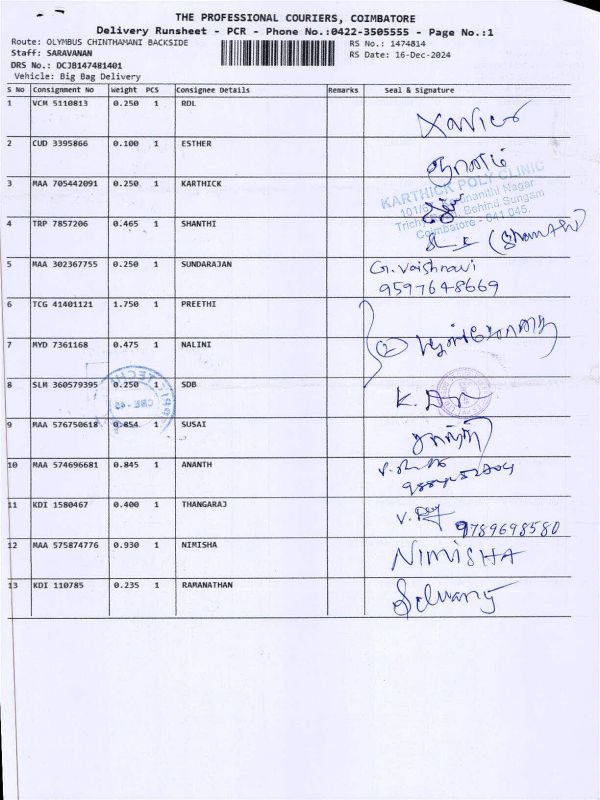 THE PROFESSIONAL COURIERS, COIMBATORE
Delivery Runsheet - PCR - Phone No.:0422-3505555 - Page No.:1
Route: OLYMBUS CHINTHAMANI BACKSIDE
RS No.: 1474814
Staff: SARAVANAN
RS Date: 16-Dec-2024
DRS No.: DCJB147481401
Vehicle: Big Bag Delivery
S No Consignment No Weight PCS Consignee Details Remarks Seal & Signature
1 VCM 5110813 0.250 1 RDL Xavier
2 CUD 3395866 0.100 1 ESTHER
3 MAA 705442091 0.250 1 KARTHICK
KARTHICK POLY CLINIC
Behind Sungam
Coimbatore - 641 045.
4 TRP 7857206 0.465 1 SHANTHI
5 MAA 302367755 0.250 1 SUNDARAJAN G. Vaishnavi
9597648669
6 TCG 41401121 1.750 1 PREETHI
7 MYD 7361168 0.475 1 NALINI
8 SLM 360579395 0.250 1 SDB
9 MAA 576750618 0.854 1 SUSAI
10 MAA 574696681 0.845 1 ANANTH
11 KDI 1580467 0.400 1 THANGARAJ
9789698580
12 MAA 575874776 0.930 1 NIMISHA NIMISHA
13 KDI 110785 0.235 1 RAMANATHAN